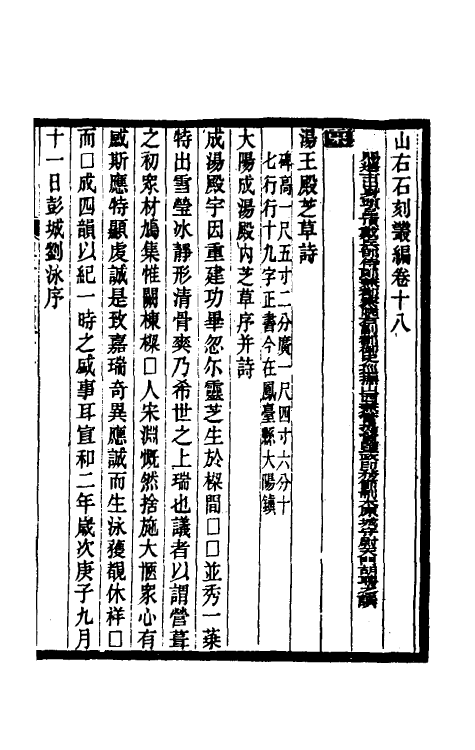 山右石刻叢編卷十八
湯王殿芝草詩
碑高一尺五寸二分廣一尺四寸六分十
七行行十九字正書今在鳳臺縣大陽鎮
大陽成湯殿內芝草序并詩
成湯殿宇因重建功畢忽尓靈芝生於樑間□□並秀一蕖
特出雪瑩冰靜形清骨爽乃希世之上瑞也議者以謂營葺
之初衆材鳩集惟闕棟樑□人宋淵慨然捨施大愜衆心有
感斯應特顯虔誠是致嘉瑞奇異應誠而生泳獲覩休祥□
而□成四韻以紀一時之盛事耳宣和二年歲次庚子九月
十一日彭城劉泳序